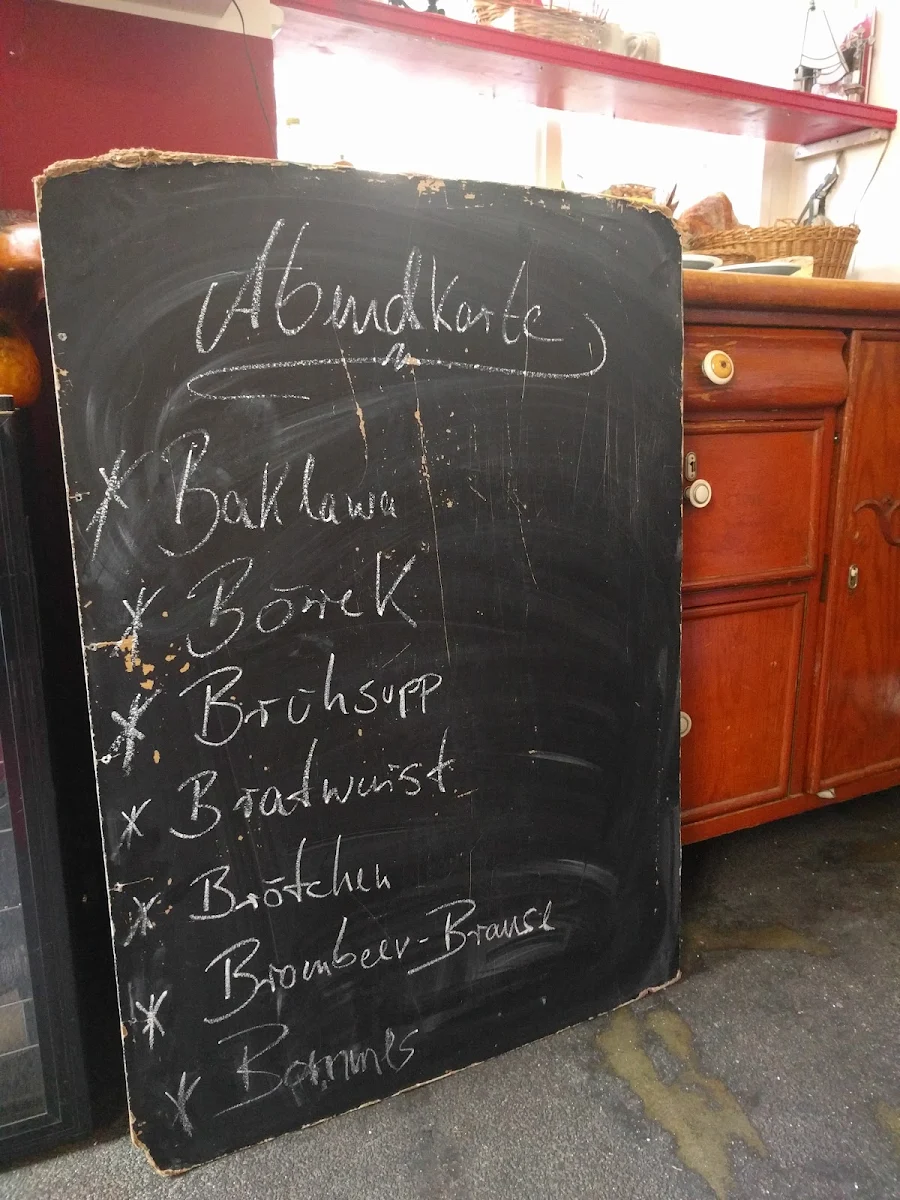 Abendkarte
* Baklawa
* Börek
* Brühsupp
* Bratwurst
* Brötchen
* Brombeer-Brause
* Bommes